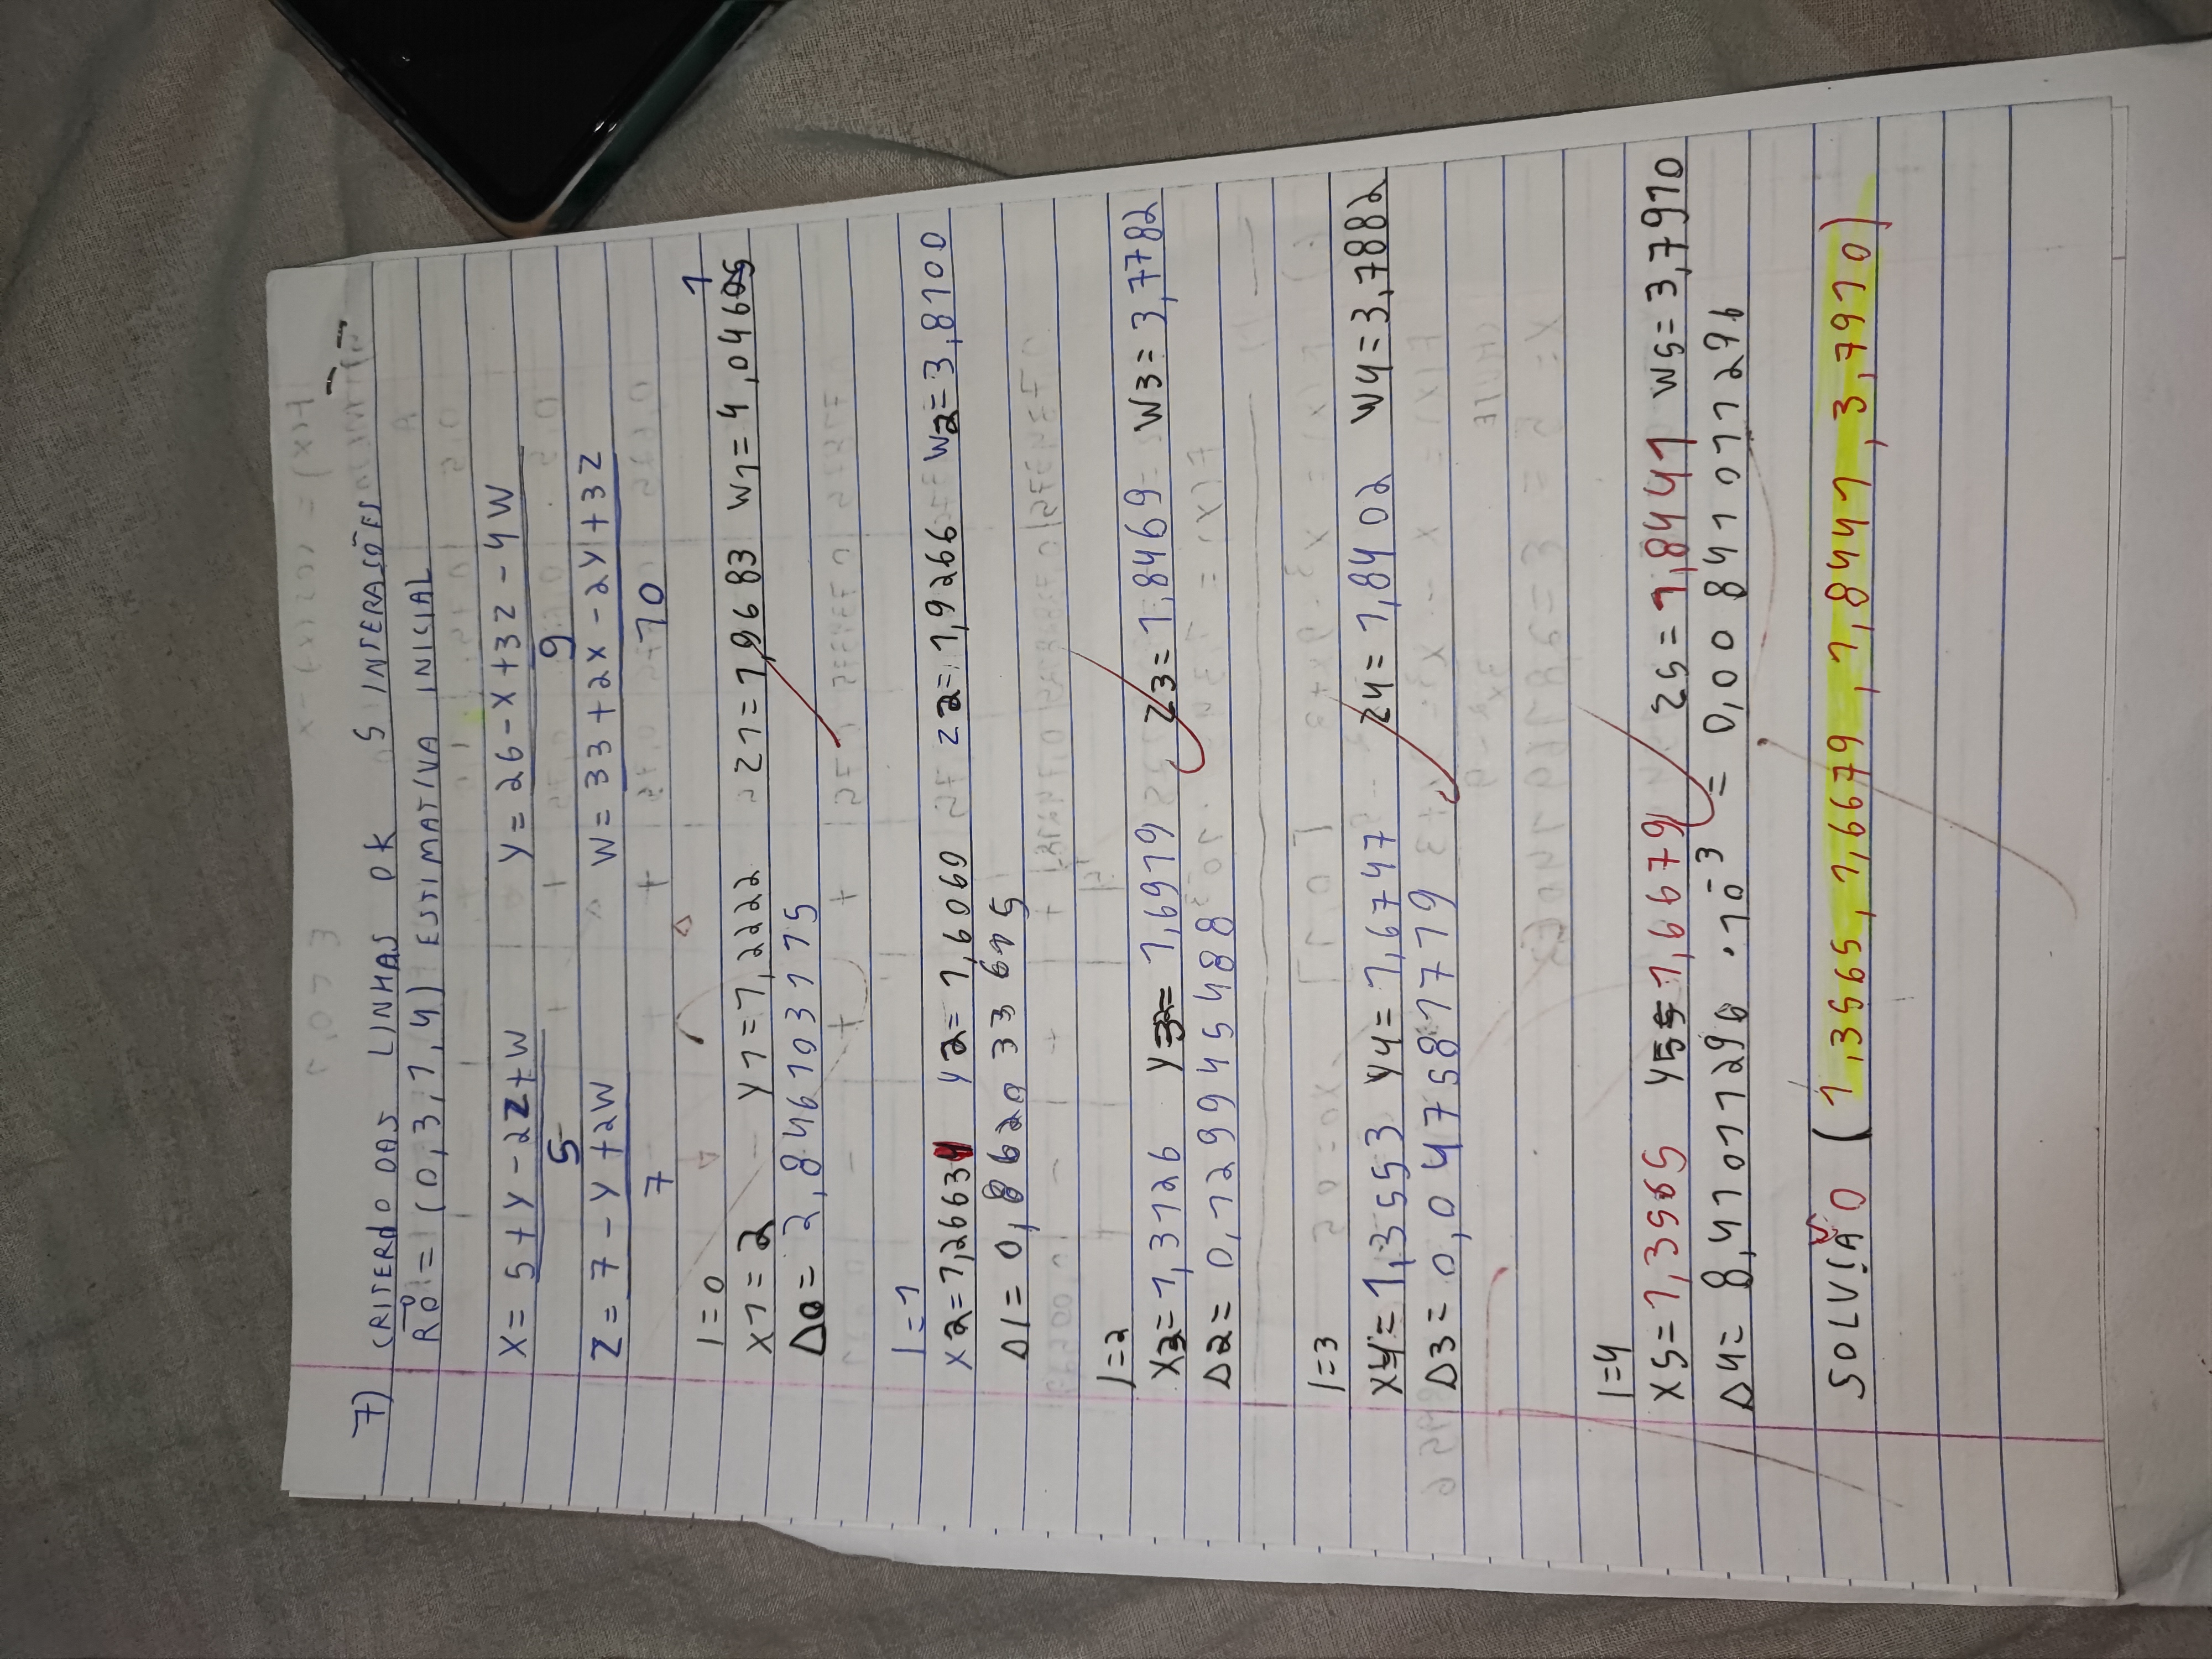 7) CRITERIO DAS LINHAS OK 5 INTERASÕES
R0 = (0,3,1,4) ESTIMATIVA INICIAL
X = 5+Y-2Z+W / 5 Y = 26-X+3Z-4W / 9
Z = 7-Y+2W / 7 W = 33+2X-2Y+3Z / 10
I=0
X1=2 Y1=1,2222 Z1=1,9683 W1=4,0461
Δ0= 2,846103175
I=1
X2=1,2663 Y2= 1,6060 Z2= 1,9266 W2=3,8100
Δ1= 0,862033615
I=2
X3=1,3126 Y3= 1,6919 Z3= 1,8469 W3= 3,7782
Δ2= 0,129945488
I=3
X4=1,3553 Y4= 1,6747 Z4= 1,8402 W4=3,7882
Δ3= 0,0475817719
I=4
X5=1,3565 Y5= 1,6679 Z5= 1,8441 W5=3,7910
Δ4= 8,411011296 · 10⁻³ = 0,008411011296
SOLUÇÃO (1,3565, 1,6679, 1,8441, 3,7910)